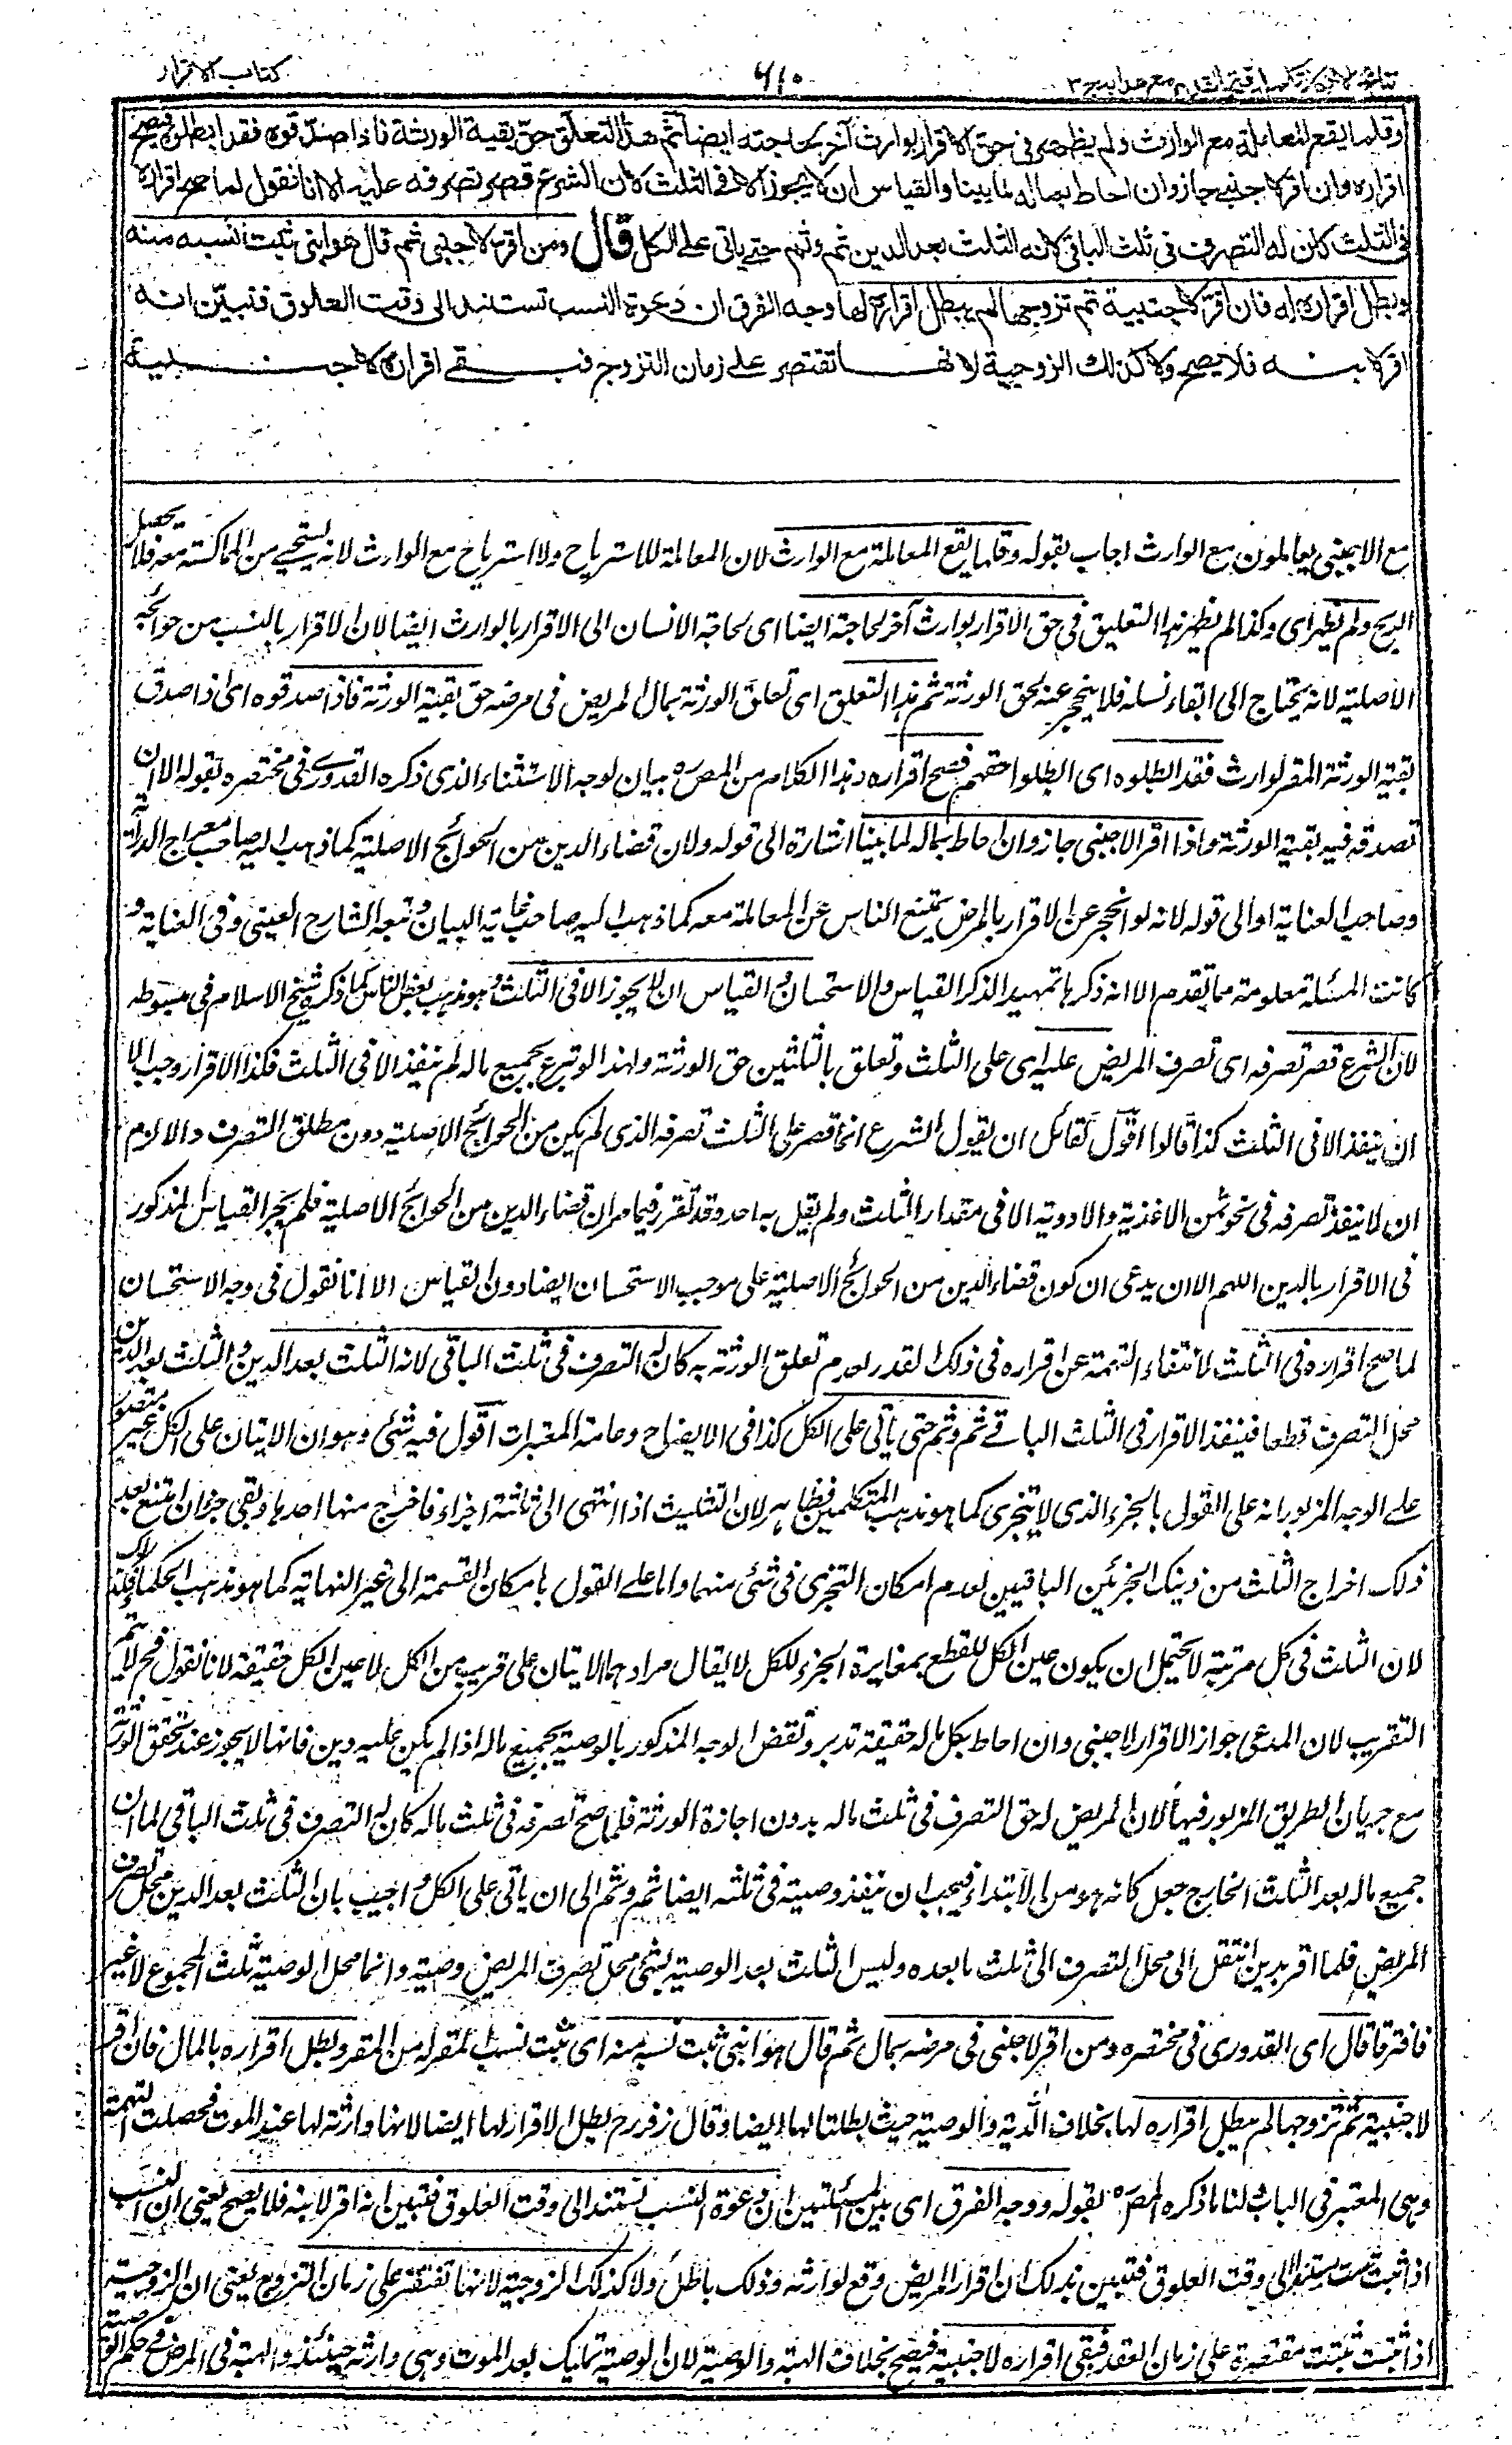 نتائج الافکار تکملہ فتح القدیر مع ہدایہ ج ۳
۶۱۰
کتاب الاقرار
وقلما یقع المعاملة مع الوارث ولم یظهر فی حق الاقرار بوارث آخر لحاجته ایضا ثم هذا التعلق حق بقیة الورثة فاذا صدقوه فقد ابطلوه فیصح
اقراره وان اقر لاجنبی جاز وان احاط بماله لما بینا والقیاس ان لا یجوز الا فی الثلث لان الشرع قصر تصرفه علیه الا انا نقول لما صح اقراره
فی الثلث کان له التصرف فی ثلث الباقی لانه الثلث بعد الدین ثم وثم حتی یاتی علی الکل قال ومن اقر لاجنبی ثم قال هو ابنی ثبت نسبه منه
وبطل اقراره له فان اقر لاجنبیة ثم تزوجها لم یبطل اقراره لها وجه الفرق ان دعوة النسب تستند الی وقت العلوق فتبین انه
اقر لابنه فلا یصح ولا کذلک الزوجیة لانها تقتصر علی زمان التزوج فبقی اقراره لاجنبیة
مع الاجنبی یعاملون مع الوارث اجاب بقوله وقلما یقع المعاملة مع الوارث لان المعاملة للاسترباح ولا استرباح مع الوارث لانه یستحیی من المماکسة معه فلا یحصل
الربح ولم یظهر ای وکذا لم یظهر هذا التعلیق فی حق الاقرار بوارث آخر لحاجته ایضا ای لحاجة الانسان الی الاقرار بالوارث ایضا لان الاقرار بالنسب من حوائجه
الاصلیة لانه یحتاج الی ابقاء نسله فلا ینحجر عنه لحق الورثة ثم هذا التعلق ای تعلق الورثة بمال المریض فی مرضه حق بقیة الورثة فاذا صدقوه ای اذا صدق
بقیة الورثة المقر لوارث فقد ابطلوه ای ابطلوا حقهم فصح اقراره وهذا الکلام من المصره بیان لوجه الاستثناء الذی ذکره القدوری فی مختصره بقوله الا ان
تصدقه فیه بقیة الورثة واذا اقر لاجنبی جاز وان احاط بماله لما بینا اشارة الی قوله ولان قضاء الدین من الحوائج الاصلیة کما ذهب الیه صاحب معراج الدرایة
وصاحب العنایة او الی قوله لانه لو انحجر عن الاقرار بالمرض یمتنع الناس عن المعاملة معه کما ذهب الیه صاحب غایة البیان وتبعه الشارح العینی وفی العنایة و
کانت المسئلة معلومة مما تقدم الا انه ذکرها تمهیدا لذکر القیاس والاستحسان والقیاس ان لا یجوز الا فی الثلث وهو مذهب بعض الناس کما ذکره شیخ الاسلام فی مبسوطه
لان الشرع قصر تصرفه ای تصرف المریض علیه ای علی الثلث وتعلق بالثلثین حق الورثة ولهذا لو تبرع بجمیع ماله لم ینفذ الا فی الثلث فکذا الاقرار وجب الا
ان ینفذ الا فی الثلث کذا قالوا اقول لقائل ان یقول الشرع انما قصر علی الثلث تصرفه الذی لم یکن من الحوائج الاصلیة دون مطلق التصرف والا لزم
ان لا ینفذ تصرفه فی نحو ثمن الاغذیة والادویة الا فی مقدار الثلث ولم یقل به احد وقد تقرر فیما مر ان قضاء الدین من الحوائج الاصلیة فلم یجر القیاس المذکور
فی الاقرار بالدین اللهم الا ان یدعی ان کون قضاء الدین من الحوائج الاصلیة علی موجب الاستحسان ایضا دون القیاس الا انا نقول فی وجه الاستحسان
لما صح اقراره فی الثلث لانتفاء التهمة عن اقراره فی ذلک القدر لعدم تعلق الورثة به کان له التصرف فی ثلث الباقی لانه الثلث بعد الدین والثلث بعد الدین
محل التصرف قطعا فینفذ الاقرار فی الثلث الباقی ثم وثم حتی یاتی علی الکل کذا فی الایضاح وعامة المعتبرات اقول فیه شئ وهو ان الاتیان علی الکل غیر متصور
علی الوجه المزبور انه علی القول بالجزء الذی لا یتجزی کما هو مذهب المتکلمین فظاهر لان التثلیث اذا انتهی الی ثلثة اجزاء فاخرج منها احدها وبقی جزءان امتنع بعد
ذلک اخراج الثلث من ذینک الجزئین الباقیین لعدم امکان التجزی فی شئی منهما واما علی القول بامکان القسمة الی غیر النهایة کما هو مذهب الحکماء فکذلک
لان الثلث فی کل مرتبة لا یحتمل ان یکون عین الکل للقطع بمغایرة الجزء للکل لا یقال مرادهم الاتیان علی قریب من الکل لا عین الکل حقیقة لانا نقول فح لا یتم
التقریب لان المدعی جواز الاقرار لاجنبی وان احاط بکل ماله حقیقة تدبر ونقض الوجه المذکور بالوصیة بجمیع ماله اذا لم یکن علیه دین فانها لا یجوز عند تحقق الورثة
مع جریان الطریق المزبور فیها لان المریض له حق التصرف فی ثلث ماله بدون اجازة الورثة فلما صح تصرفه فی ثلث ماله کان له التصرف فی ثلث الباقی لما ان
جمیع ماله بعد الثلث الخارج جعل کانه هو من الابتداء فیجب ان ینفذ وصیته فی ثلثه ایضا ثم وثم الی ان یاتی علی الکل واجیب بان الثلث بعد الدین محل تصرف
المریض فلما اقر بدین انتقل الی محل التصرف الی ثلث ما بعده ولیس الثلث بعد الوصیة بشئ محل تصرف المریض وصیة وانما محل الوصیة ثلث المجموع لا غیر
فافترقا قال ای القدوری فی مختصره ومن اقر لاجنبی فی مرضه بمال ثم قال هو ابنی ثبت نسبه منه ای ثبت نسب المقر له من المقر وبطل اقراره بالمال فان اقر
لاجنبیة ثم تزوجها لم یبطل اقراره لها بخلاف الهبة والوصیة حیث بطلتا لها ایضا وقال زفر رح بطل الاقرار لها ایضا لانها وارثة لها عند الموت فحصلت التهمة
وهی المعتبر فی الباب لنا ما ذکره المصره بقوله ووجه الفرق ای بین المسئلتین ان دعوة النسب تستند الی وقت العلوق فتبین انه اقر لابنه فلا یصح یعنی ان النسب
اذا ثبت یستند الی وقت العلوق فتبین بذلک ان اقرار المریض وقع لوارثه وذلک باطل ولا کذلک الزوجیة لانها تقتصر علی زمان التزوج یعنی ان الزوجیة
اذا ثبتت ثبتت مقتصرة علی زمان العقد فبقی اقراره لاجنبیة فیصح بخلاف الهبة والوصیة لان الوصیة تملیک بعد الموت وهی وارثه حینئذ والهبة فی المرض فی حکم الوصیة